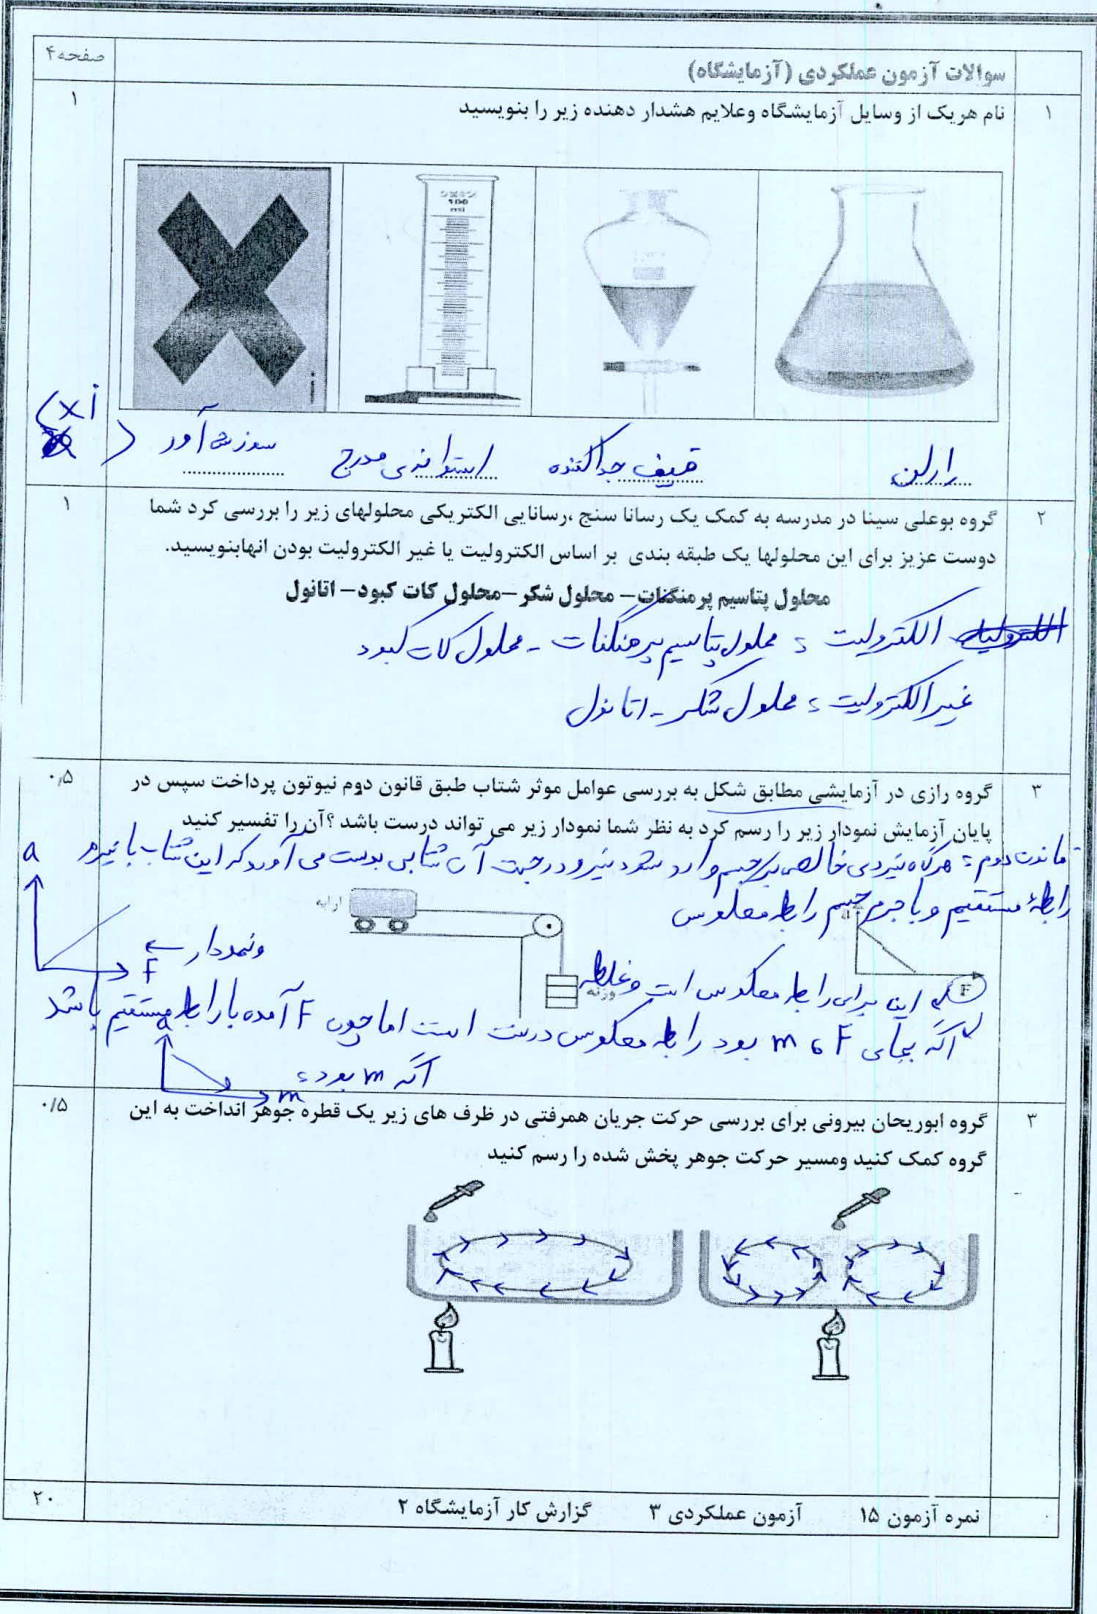 سوالات آزمون عملکردی (آزمایشگاه) صفحه۴
۱ نام هریک از وسایل آزمایشگاه وعلایم هشدار دهنده زیر را بنویسید ۱
ارلن
قیف جداکننده
استوانه‌ی مدرج
سوزش آور (xi)
۲ گروه بوعلی سینا در مدرسه به کمک یک رسانا سنج ،رسانایی الکتریکی محلولهای زیر را بررسی کرد شما ۱
دوست عزیز برای این محلولها یک طبقه بندی بر اساس الکترولیت یا غیر الکترولیت بودن انهابنویسید.
محلول پتاسیم پرمنگنات– محلول شکر –محلول کات کبود– اتانول
الکترولیت : محلول پتاسیم پرمنگنات - محلول کات کبود
غیر الکترولیت : محلول شکر - اتانول
۳ گروه رازی در آزمایشی مطابق شکل به بررسی عوامل موثر شتاب طبق قانون دوم نیوتون پرداخت سپس در ۰/۵
پایان آزمایش نمودار زیر را رسم کرد به نظر شما نمودار زیر می تواند درست باشد ؟آن را تفسیر کنید
قانون دوم : هرگاه نیروی خالصی بر جسم وارد شود نیرو در جهت آن شتابی بدست می آورد که این شتاب با نیرو
رابطهٔ مستقیم و با جرم جسم رابطه معکوس
a
F
ونمودار ←
ارابه
وزنه
a
F
این برای رابطه معکوس است و غلط
اگه بجای F ، m بود رابطه معکوس درست است اما چون F آمده با رابطه مستقیم باشد
اگه m بود :
a
m
۳ گروه ابوریحان بیرونی برای بررسی حرکت جریان همرفتی در ظرف های زیر یک قطره جوهر انداخت به این ۰/۵
گروه کمک کنید ومسیر حرکت جوهر پخش شده را رسم کنید
نمره آزمون ۱۵ آزمون عملکردی ۳ گزارش کار آزمایشگاه ۲ ۲۰